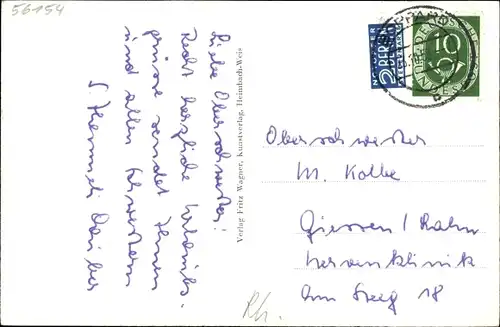 56154
Liebe Oberschwester!
Recht herzliche Urlaubs-
grüsse sendet Ihnen
und allen Schwestern
S.
Verlag Fritz Wagner, Kunstverlag, Heimbach-Weis
NOTOPFER
2 BERLIN
STEUERMARKE
10
Oberschwester
M. Kolbe
Giessen / Lahn
Nervenklinik
Am Steg 18
Rh.